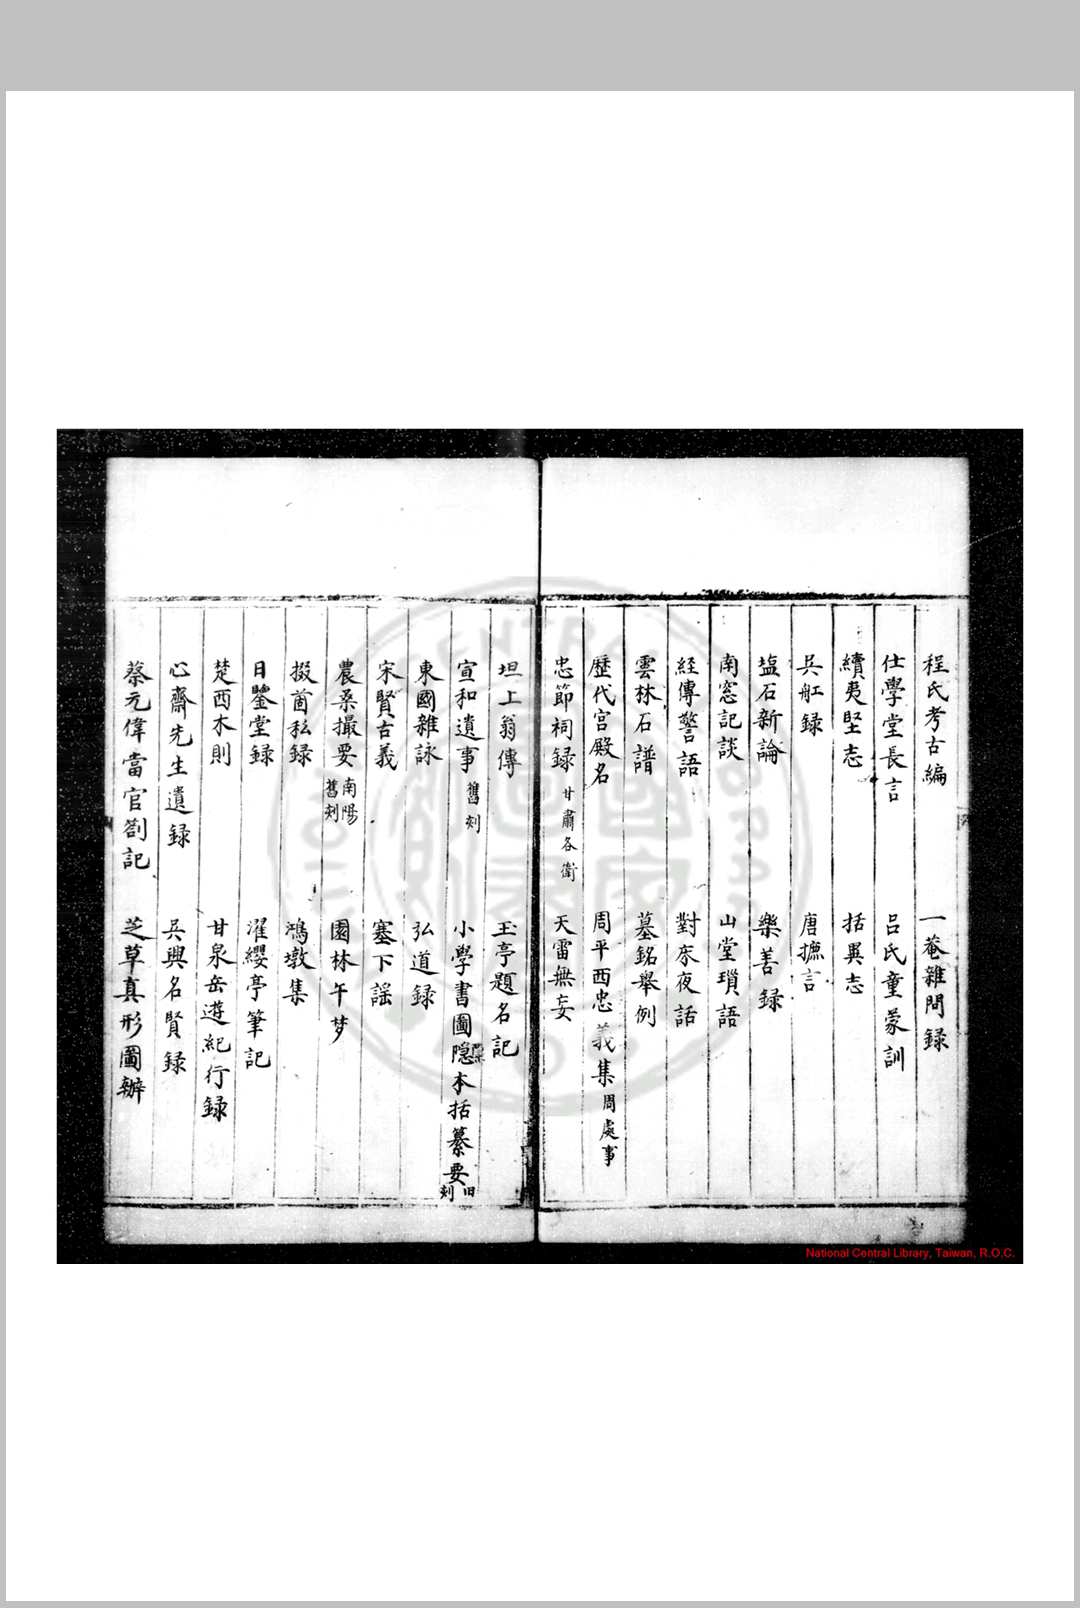 程氏考古編　一菴雜問録
仕學堂長言　呂氏童蒙訓
續夷堅志　括異志
吳舡録　唐摭言
塩石新論　樂善録
南窓記談　山堂瑣語
経傳警語　對床夜話
雲林石譜　墓銘舉例
歷代宮殿名　周平西忠義集周處事
忠節祠録甘肅各衛　天雷無妄
坦上翁傳　玉亭題名記
宣和遺事舊刻　小學書圖隱本括纂要旧刻
東國雜詠　弘道録
宋賢吉義　塞下謡
農桑撮要南陽舊刻　園林午梦
掇菌私録　鴻墩集
日鑒堂録　濯纓亭筆記
楚西木則　甘泉岳遊紀行録
心齋先生遺録　吳興名賢録
蔡元偉當官劄記　芝草真形圖辦
National Central Library, Taiwan, R.O.C.